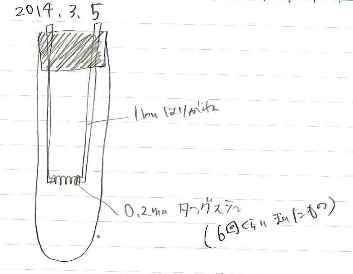 2014.3.5
1mm はりがね
0.2mm タングステン
(6回くらい巻いたもの)